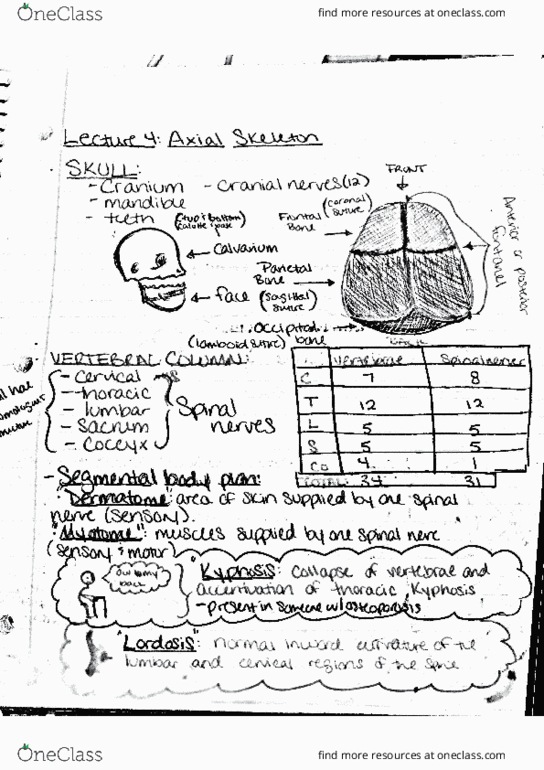 OneClass
find more resources at oneclass.com
Lecture 4: Axial Skeleton
SKULL:
- Cranium - Cranial nerves (12)
- mandible
- teeth
calvarium
face
FRONT
(coronal suture)
Frontal Bone
Parietal Bone
(sagittal suture)
occipital bone
Anterior or posterior fontanel
VERTEBRAL COLUMN:
- Cervical
- thoracic
- lumbar
- Sacrum
- Coccyx
Spinal nerves
Vertebrae Spinal nerves
C 7 8
T 12 12
L 5 5
S 5 5
Co 4 1
31
- Segmental body plan:
"Dermatome: area of skin supplied by one spinal
nerve (sensory).
"Myotome": muscles supplied by one spinal nerve
(sensory & motor)
"Kyphosis": collapse of vertebrae and
of thoracic Kyphosis
- present in someone w/osteoporosis
"Lordosis": normal inward curvature of the
lumbar and cervical regions of the spine
OneClass
find more resources at oneclass.com